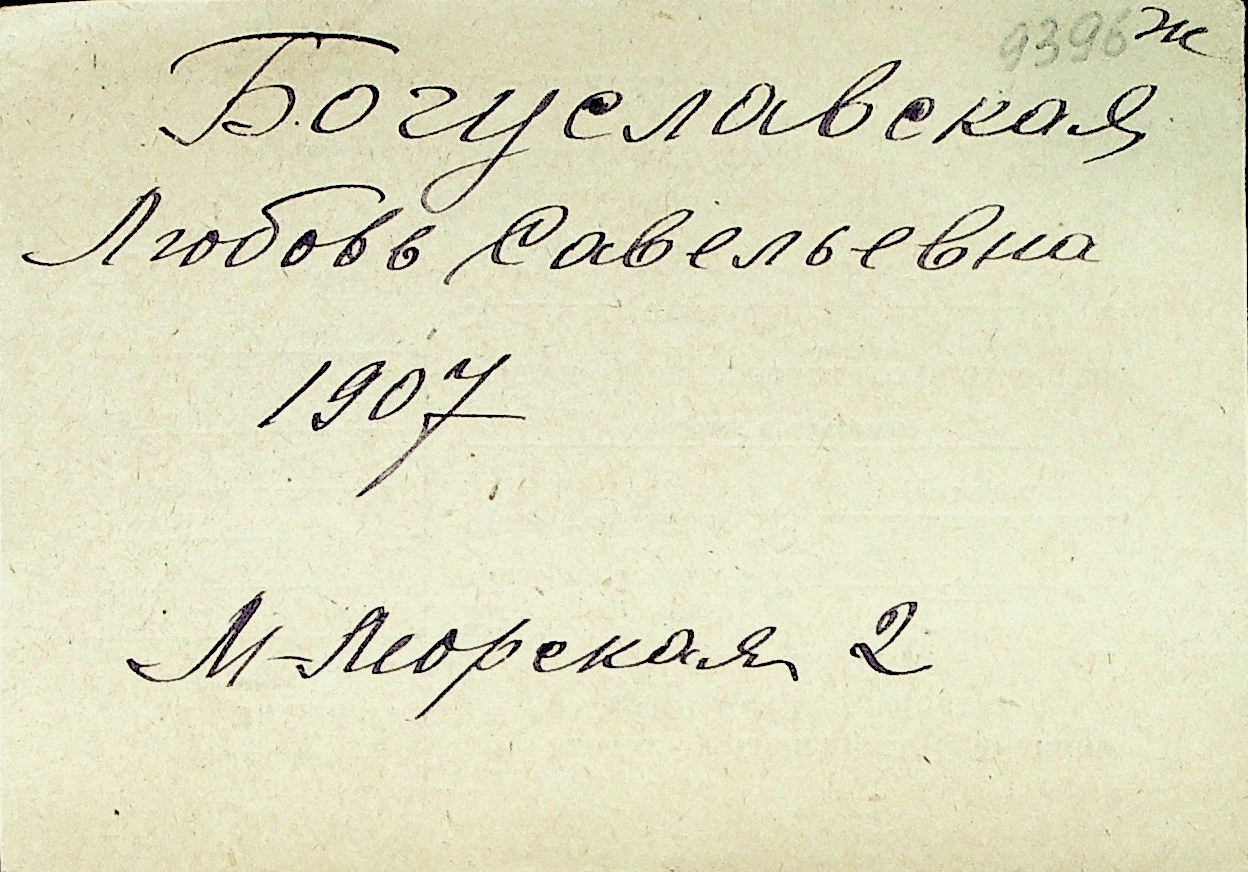 9396 ж
Богуславская
Любовь Савельевна
1907
М-Морская 2